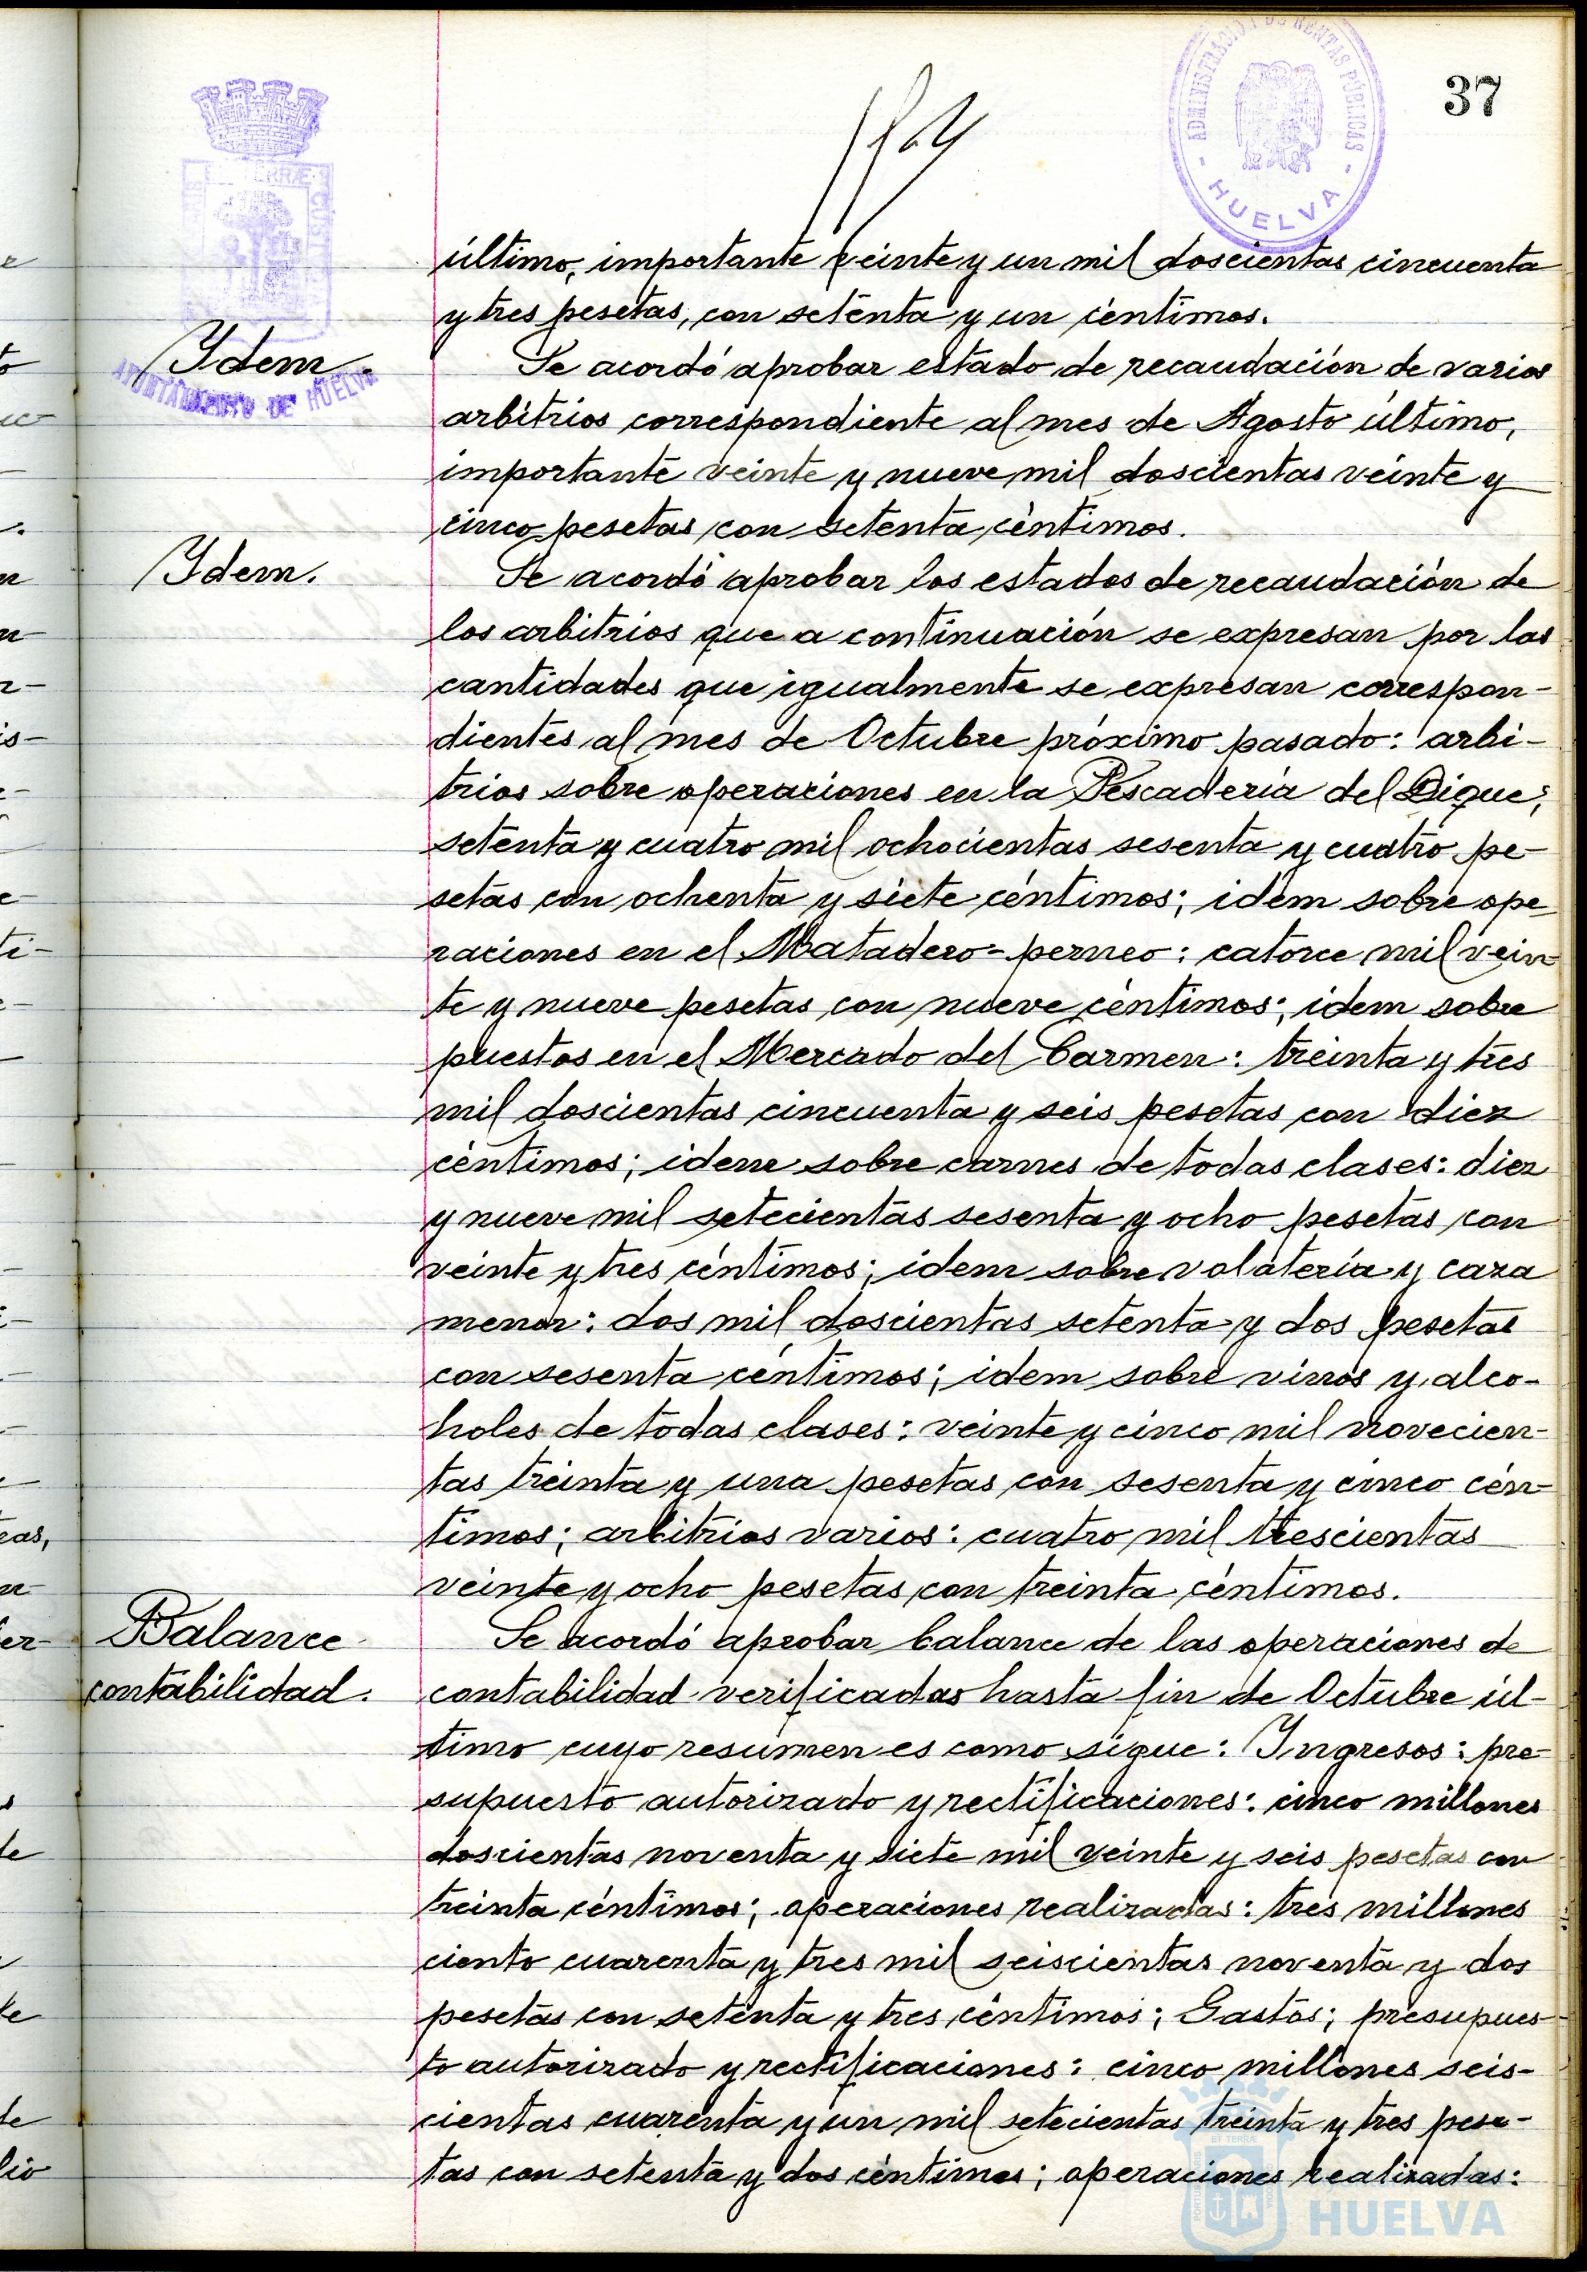 37
ADMINISTRACIÓN DE RENTAS PÚBLICAS
- HUELVA -
AYUNTAMIENTO DE HUELVA
último, importante veinte y un mil doscientas cincuenta
y tres pesetas, con setenta y un céntimos.
Idem.
Se acordó aprobar estado de recaudación de varios
arbitrios correspondiente al mes de Agosto último,
importante veinte y nueve mil doscientas veinte y
cinco pesetas con setenta céntimos.
Idem.
Se acordó aprobar los estados de recaudación de
los arbitrios que a continuación se expresan por las
cantidades que igualmente se expresan correspon-
dientes al mes de Octubre próximo pasado: arbi-
trios sobre operaciones en la Pescadería del Dique;
setenta y cuatro mil ochocientas sesenta y cuatro pe-
setas con ochenta y siete céntimos; idem sobre ope
raciones en el Matadero-perneo: catorce mil vein-
te y nueve pesetas con nueve céntimos; idem sobre
puestos en el Mercado del Carmen: treinta y tres
mil doscientas cincuenta y seis pesetas con diez
céntimos; idem sobre carnes de todas clases: diez
y nueve mil setecientas sesenta y ocho pesetas con
veinte y tres céntimos; idem sobre volatería y caza
menor: dos mil doscientas setenta y dos pesetas
con sesenta céntimos; idem sobre vinos y alco-
holes de todas clases: veinte y cinco mil novecien-
tas treinta y una pesetas con sesenta y cinco cén-
timos; arbitrios varios: cuatro mil trescientas
veinte y ocho pesetas con treinta céntimos.
Balance
contabilidad.
Se acordó aprobar balance de las operaciones de
contabilidad verificadas hasta fin de Octubre úl-
timo cuyo resumen es como sigue: Ingresos: pre-
supuesto autorizado y rectificaciones: cinco millones
doscientas noventa y siete mil veinte y seis pesetas con
treinta céntimos; operaciones realizadas: tres millones
ciento cuarenta y tres mil seiscientas noventa y dos
pesetas con setenta y tres céntimos; Gastos; presupues-
to autorizado y rectificaciones: cinco millones seis-
cientas cuarenta y un mil setecientas treinta y tres pese-
tas con setenta y dos céntimos; operaciones realizadas:
HUELVA